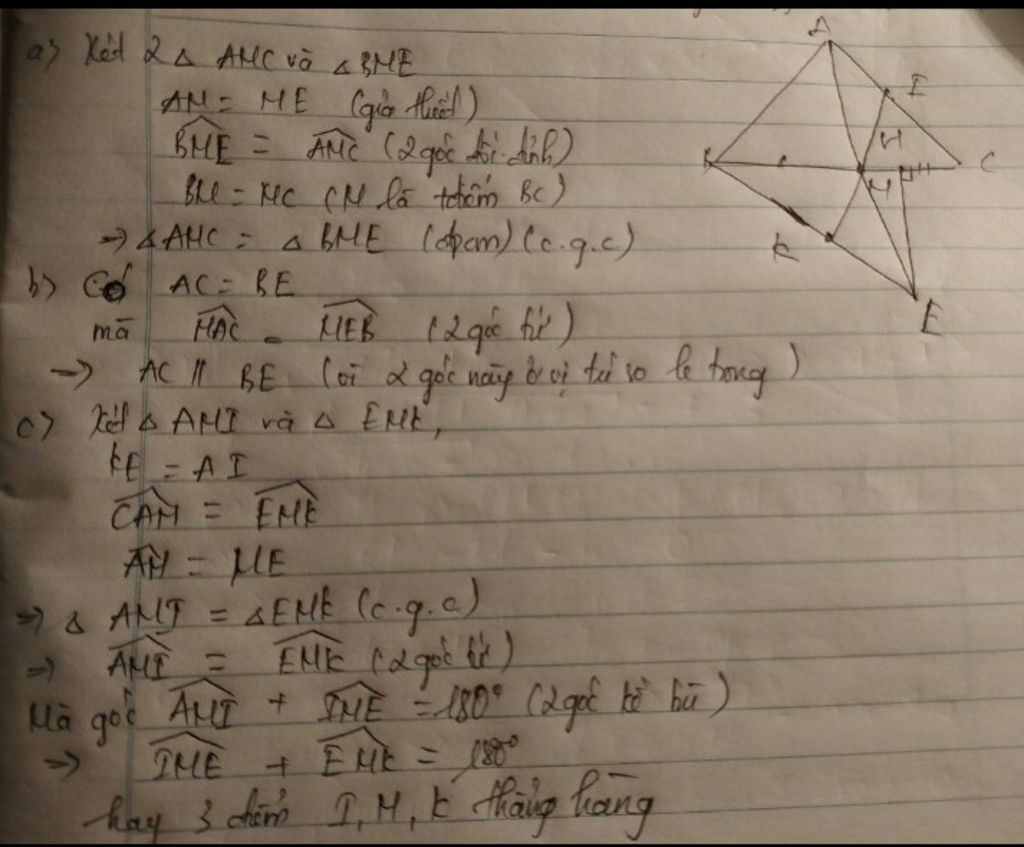 a) Xét 2 Δ AMC và Δ BME
AM = ME (giả thiết)
BME = AMC (2 góc đối đỉnh)
BM = MC (M là t điểm BC)
→ Δ AMC = Δ BME (đpcm) (c.g.c)
b) Có AC = BE
mà MAC = MEB (2 góc tứ)
→ AC // BE (vì 2 góc này ở vị trí so le trong)
c) Xét Δ AMI và Δ EMK,
KE = AI
CAM = EMK
AM = ME
→ Δ AMI = Δ EMK (c.g.c)
→ AMI = EMK (2 góc tứ)
Mà góc AMI + IME = 180° (2 góc kề bù)
→ IME + EMK = 180°
hay 3 điểm I, M, K thẳng hàng
A
I
H
B
M
C
K
E